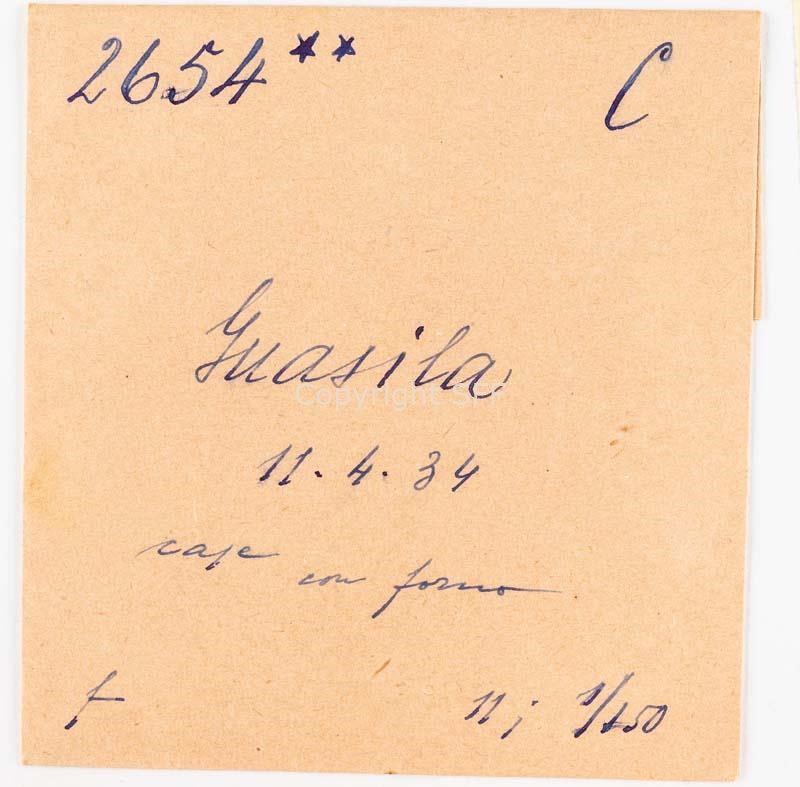 2654** C
Guasila
Copyright SFF
11. 4. 34
case
con forno
f
11; 1/150